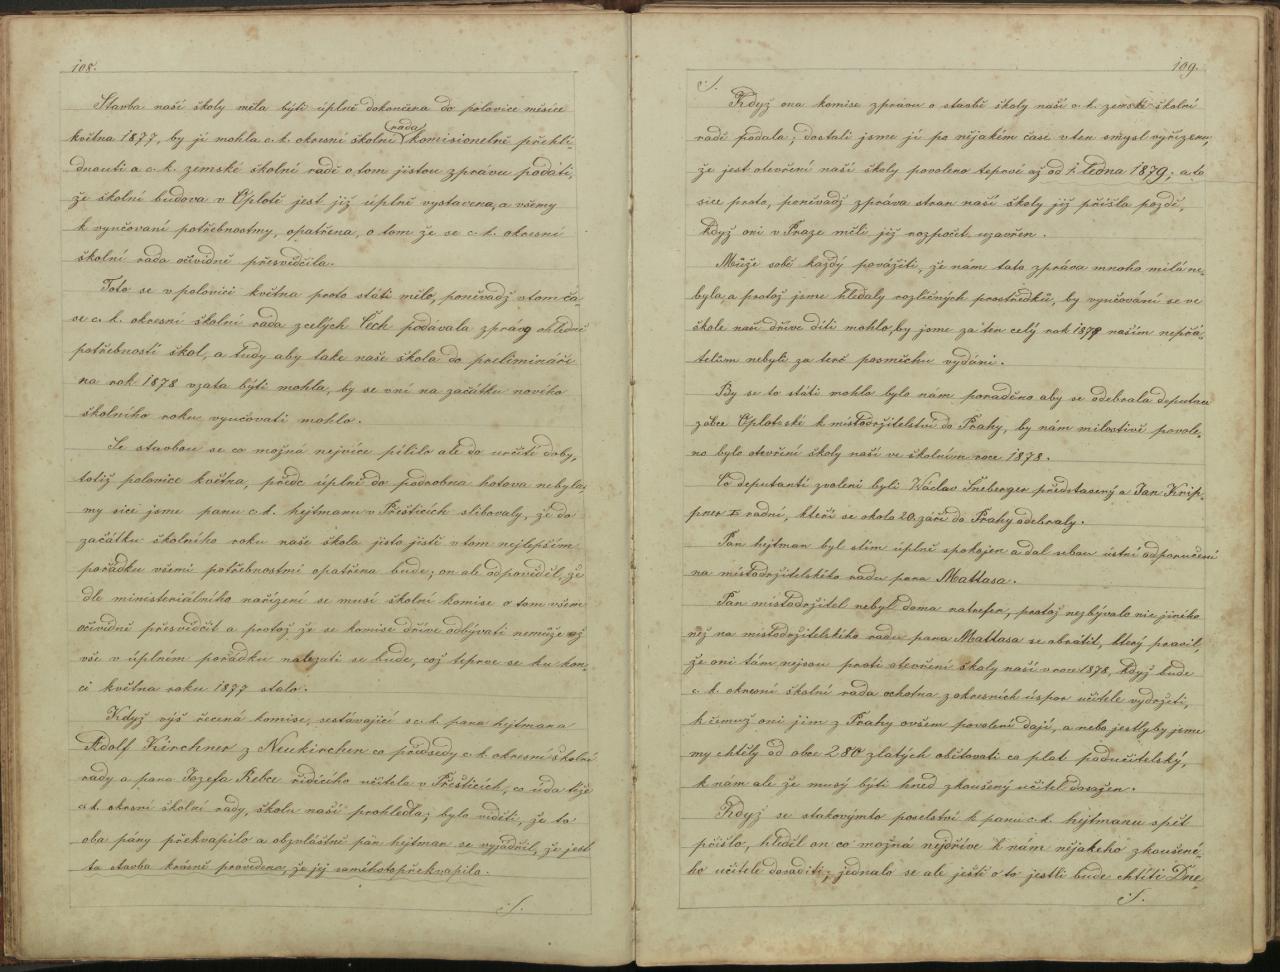 108.
Stavba naší školy měla býti úplně dokončena do polovice měsíce
května 1877, by ji mohla c. k. okresní školní rada komisionelně přehlí-
dnouti a c. k. zemské školní radě o tom jistou zprávu podati,
že školní budova v Oplotě jest již úplně vystavena, a všemy
k vyučovaní potřebnostmy, opatřena, o tom že se c. k. okresní
školní rada očividně přesvědčila.
Toto se v polovici května proto státi mělo, poněvadž v tom ča-
se c. k. okresní školní rada z celých Čech podávala zprávy ohledně
potřebností škol, a tudy aby take naše škola do prelimináře
na rok 1878 vzata býti mohla, by se v ní na začátku nového
školního roku vyučovati mohlo.
Se stavbou se co možna nejvíce pílilo ale do určité doby,
totiž polovice května, přede úplně do podrobna hotova nebyla,
my sice jsme panu c. k. hejtmanu v Přešticích slibovaly, že do
začátku školního roku naše škola jisto jistě v tom nejlepším
pořádku všemi potřebnostmi opatřena bude; on ale odpověděl, že
dle ministeriálního nařízení se musí školní komise o tom všem
očividně přesvědčit a protož že se komise dříve odbývati nemůže až
vše v úplném pořádku nalezati se bude, což teprve se ku kon-
ci května roku 1877 stalo.
Když výš řecená komise, sestávající s c. k. pana hejtmana
Adolf Kirchner z Neukirchen co předsedy c. k. okresní školní
rady a pana Jozefa Rebce řídícího učitele v Přešticích, co úda téže
c. k. okresní školní rady, školu naší prohledla; bylo viděti, že to
oba pány překvapilo a obzvláštně pán hejtman se vyjadřil, že jest
ta stavba krásně provedena, že jej samého to překvapilo.
S.
109.
S.
Když ona komise zprávu o stavbě školy naší c. k. zemské školní
radě podala; dostali jsme jí po nějakém čase v ten smysl vyřízenu,
že jest otevření naší školy povoleno teprvé až od 1. ledna 1879; a to
sice proto, poněvádž zpráva stran naší školy již přišla pozdě,
když oni v Praze měli již rozpočet uzavřen.
Může sobě každý považiti, že nám tato zpráva mnoho milá ne-
byla, a protož jsme hledaly rozličných prostředků, by vyučování se ve
škole naší dříve díti mohlo, by jsme za ten celý rok 1878 našim nepřá-
telům nebyli za terč posměchu vydáni.
By se to státi mohlo bylo nám poraděno aby se odebrala deputace
z obce Oplotské k místodržitelství do Prahy, by nám milostivě povole-
no bylo otevření školy naší ve školním roce 1878.
Co deputanti zvoleni byli Václav Šneberger představený a Jan Krip-
pner I radní, kteří se okolo 20. září do Prahy odebraly.
Pan hejtman byl s tím úplně spokojen a dal sebou ústní odporučení
na místodržitelského radu pana Mattasa.
Pan místodržitel nebyl doma natrefen, protož nezbývalo nic jiného
než na místodržitelského radu pana Mattasa se obrátit, který pravil,
že oni tám nejsou proti otevření školy naší v roce 1878, když bude
c. k. okresní školní rada ochotna z okresních úspor učitele vydržeti,
k čemuž oni jim z Prahy ovšem povolení dají, a nebo jestly by jsme
my chtěly od obce 280 zlatých obětovati co plat podučitelský,
k nám ale že musý býti hned zkoušený učitel dosazen.
Když se s takovýmto poselství k panu c. k. hejtmanu spět
přišlo, hleděl on co možná nejdříve k nám nějakeho zkoušené-
ho učitele dosaditi; jednalo se ale ještě o to jestli bude chtíti Dne
S.